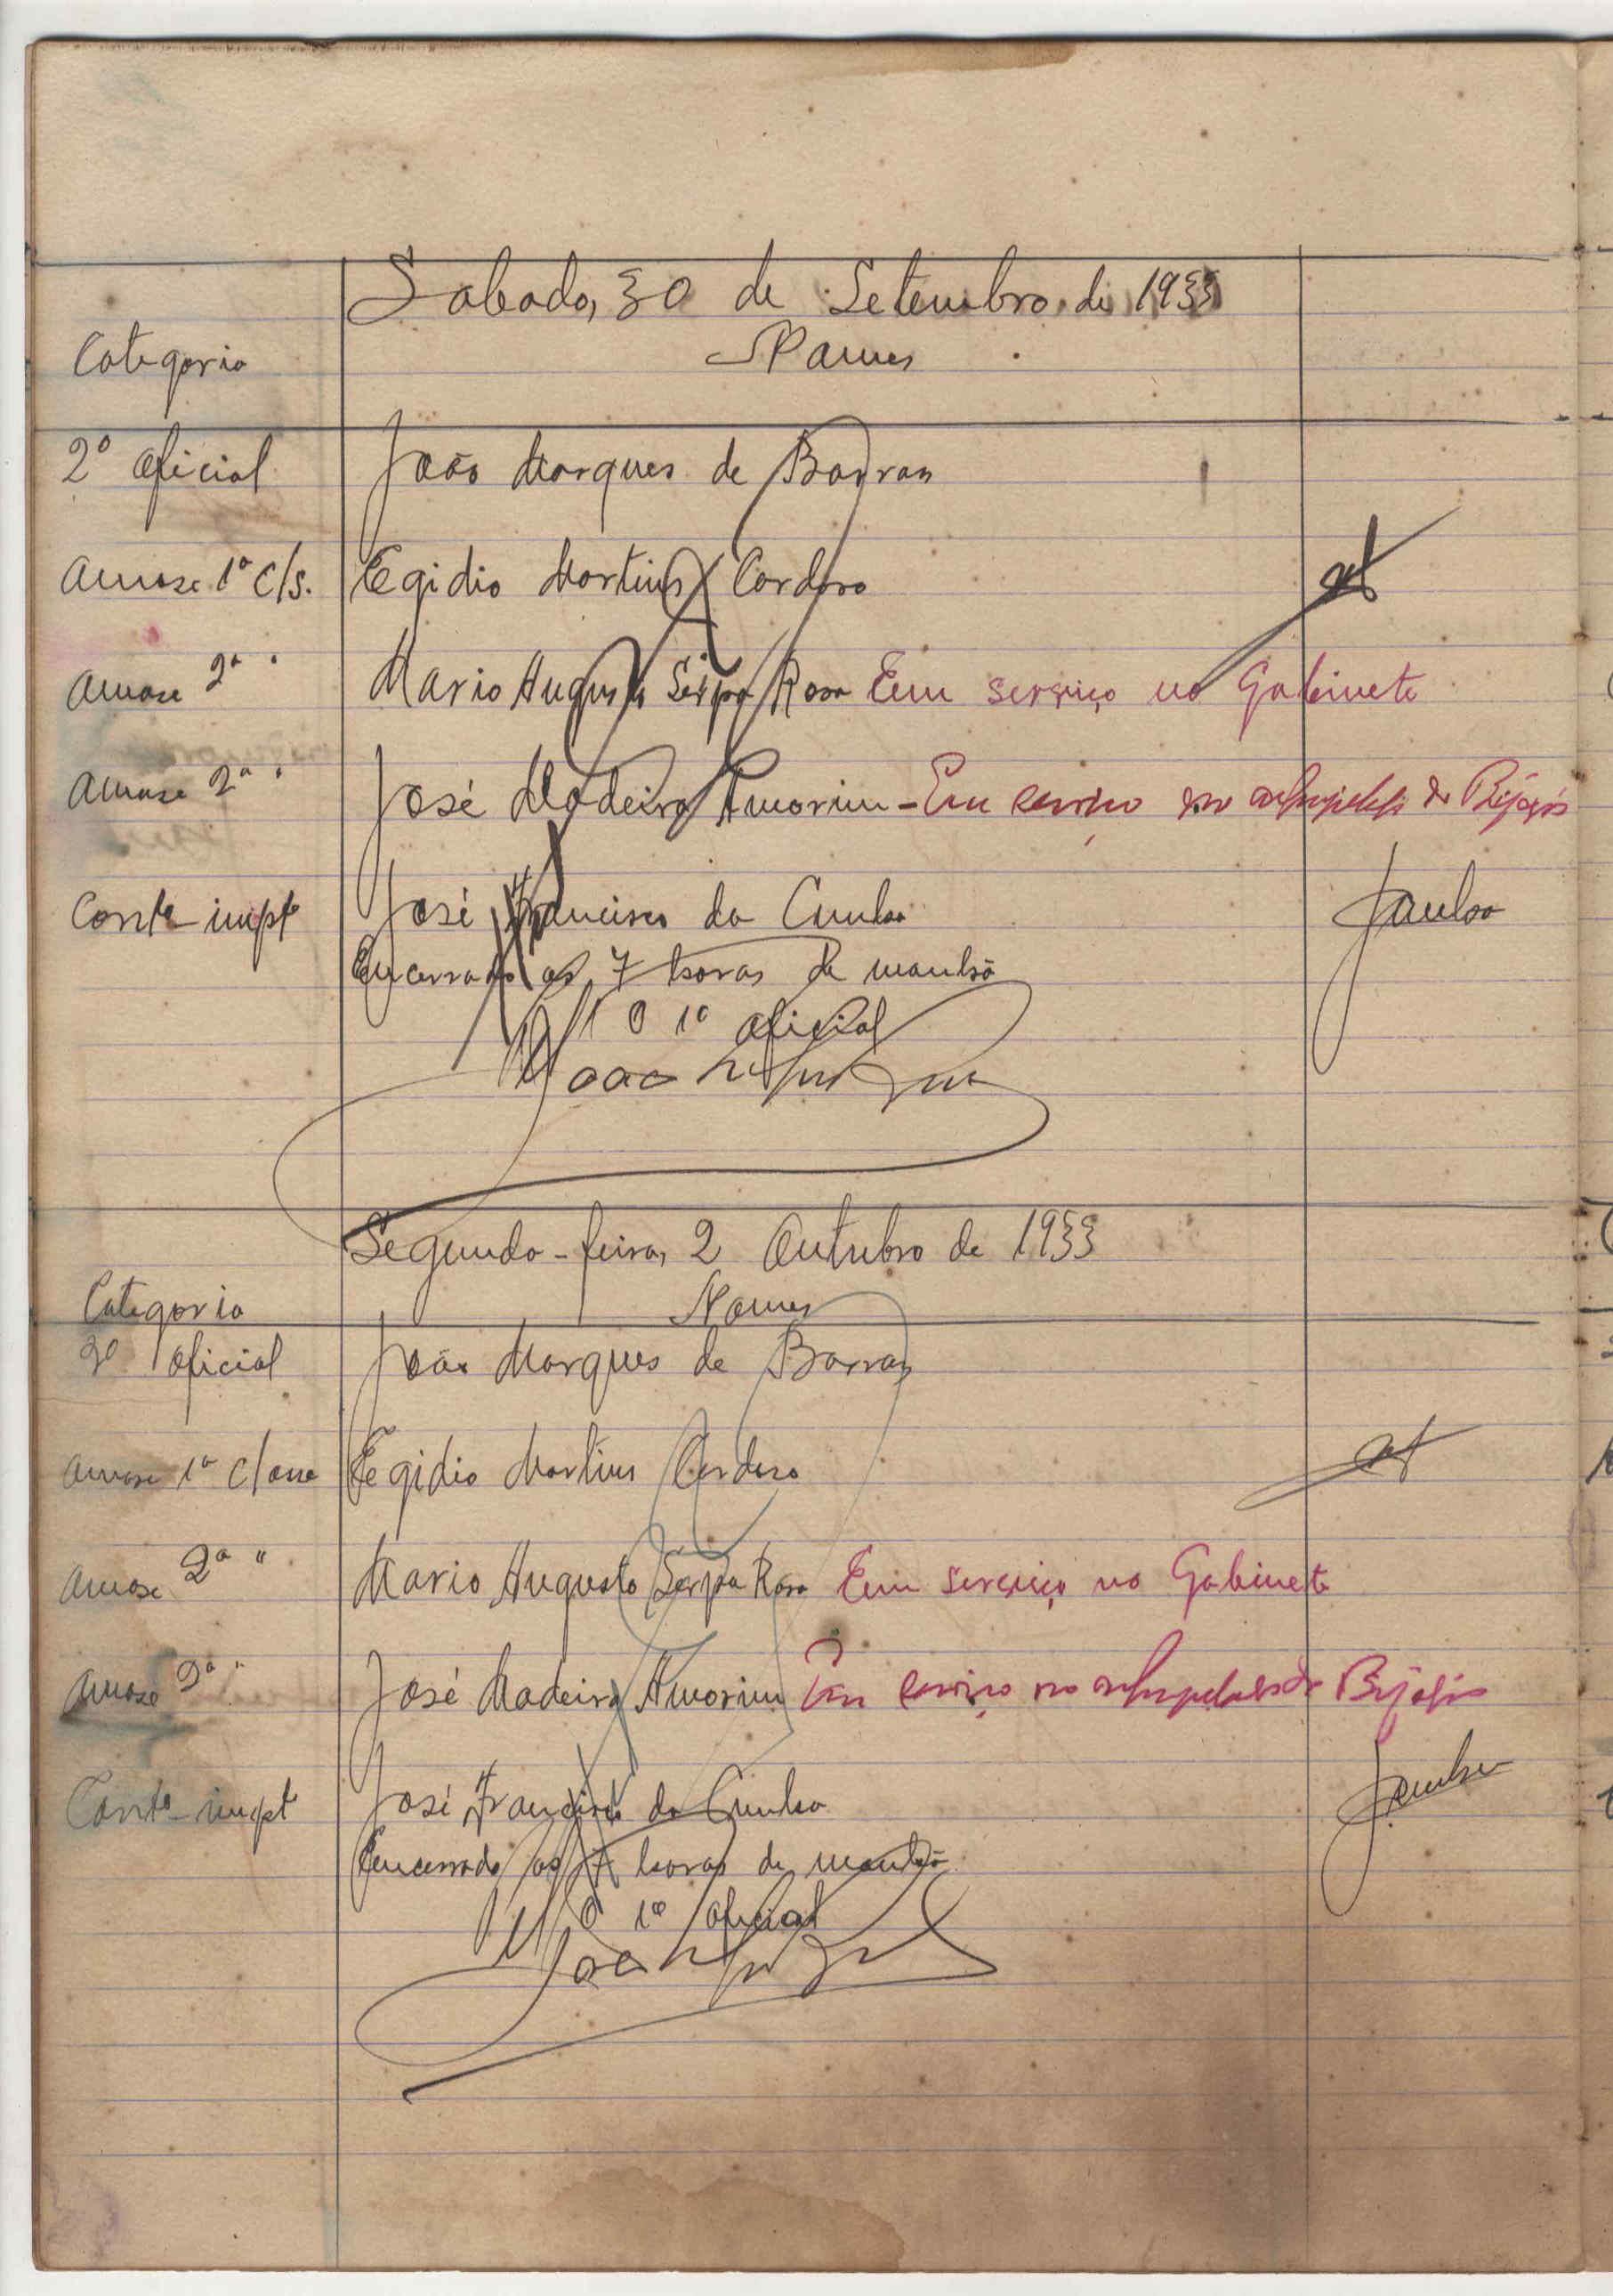 Sabado, 30 de Setembro de 1933
Categoria Nomes
2º Oficial João Marques de Barros
1ª c/s. Egidio Martins Cardoso
2ª " Mario Augusto Serpa Rosa Em serviço no Gabinete
2ª " José Madeira Amorim - Em serviço no de Bijagós
Conte impte José Francisco da Cunha JCunha
Encerrado as 7 horas da manhã
O 1º oficial
Segunda-feira, 2 Outubro de 1933
Categoria Nomes
2º Oficial João Marques de Barros
1ª classe Egidio Martins Cardoso
2ª " Mario Augusto Serpa Rosa Em serviço no Gabinete
2ª " José Madeira Amorim Em serviço no Bijagós
Conte impte José Francisco da Cunha JCunha
Encerrado as 7 horas da manhã
O 1º oficial